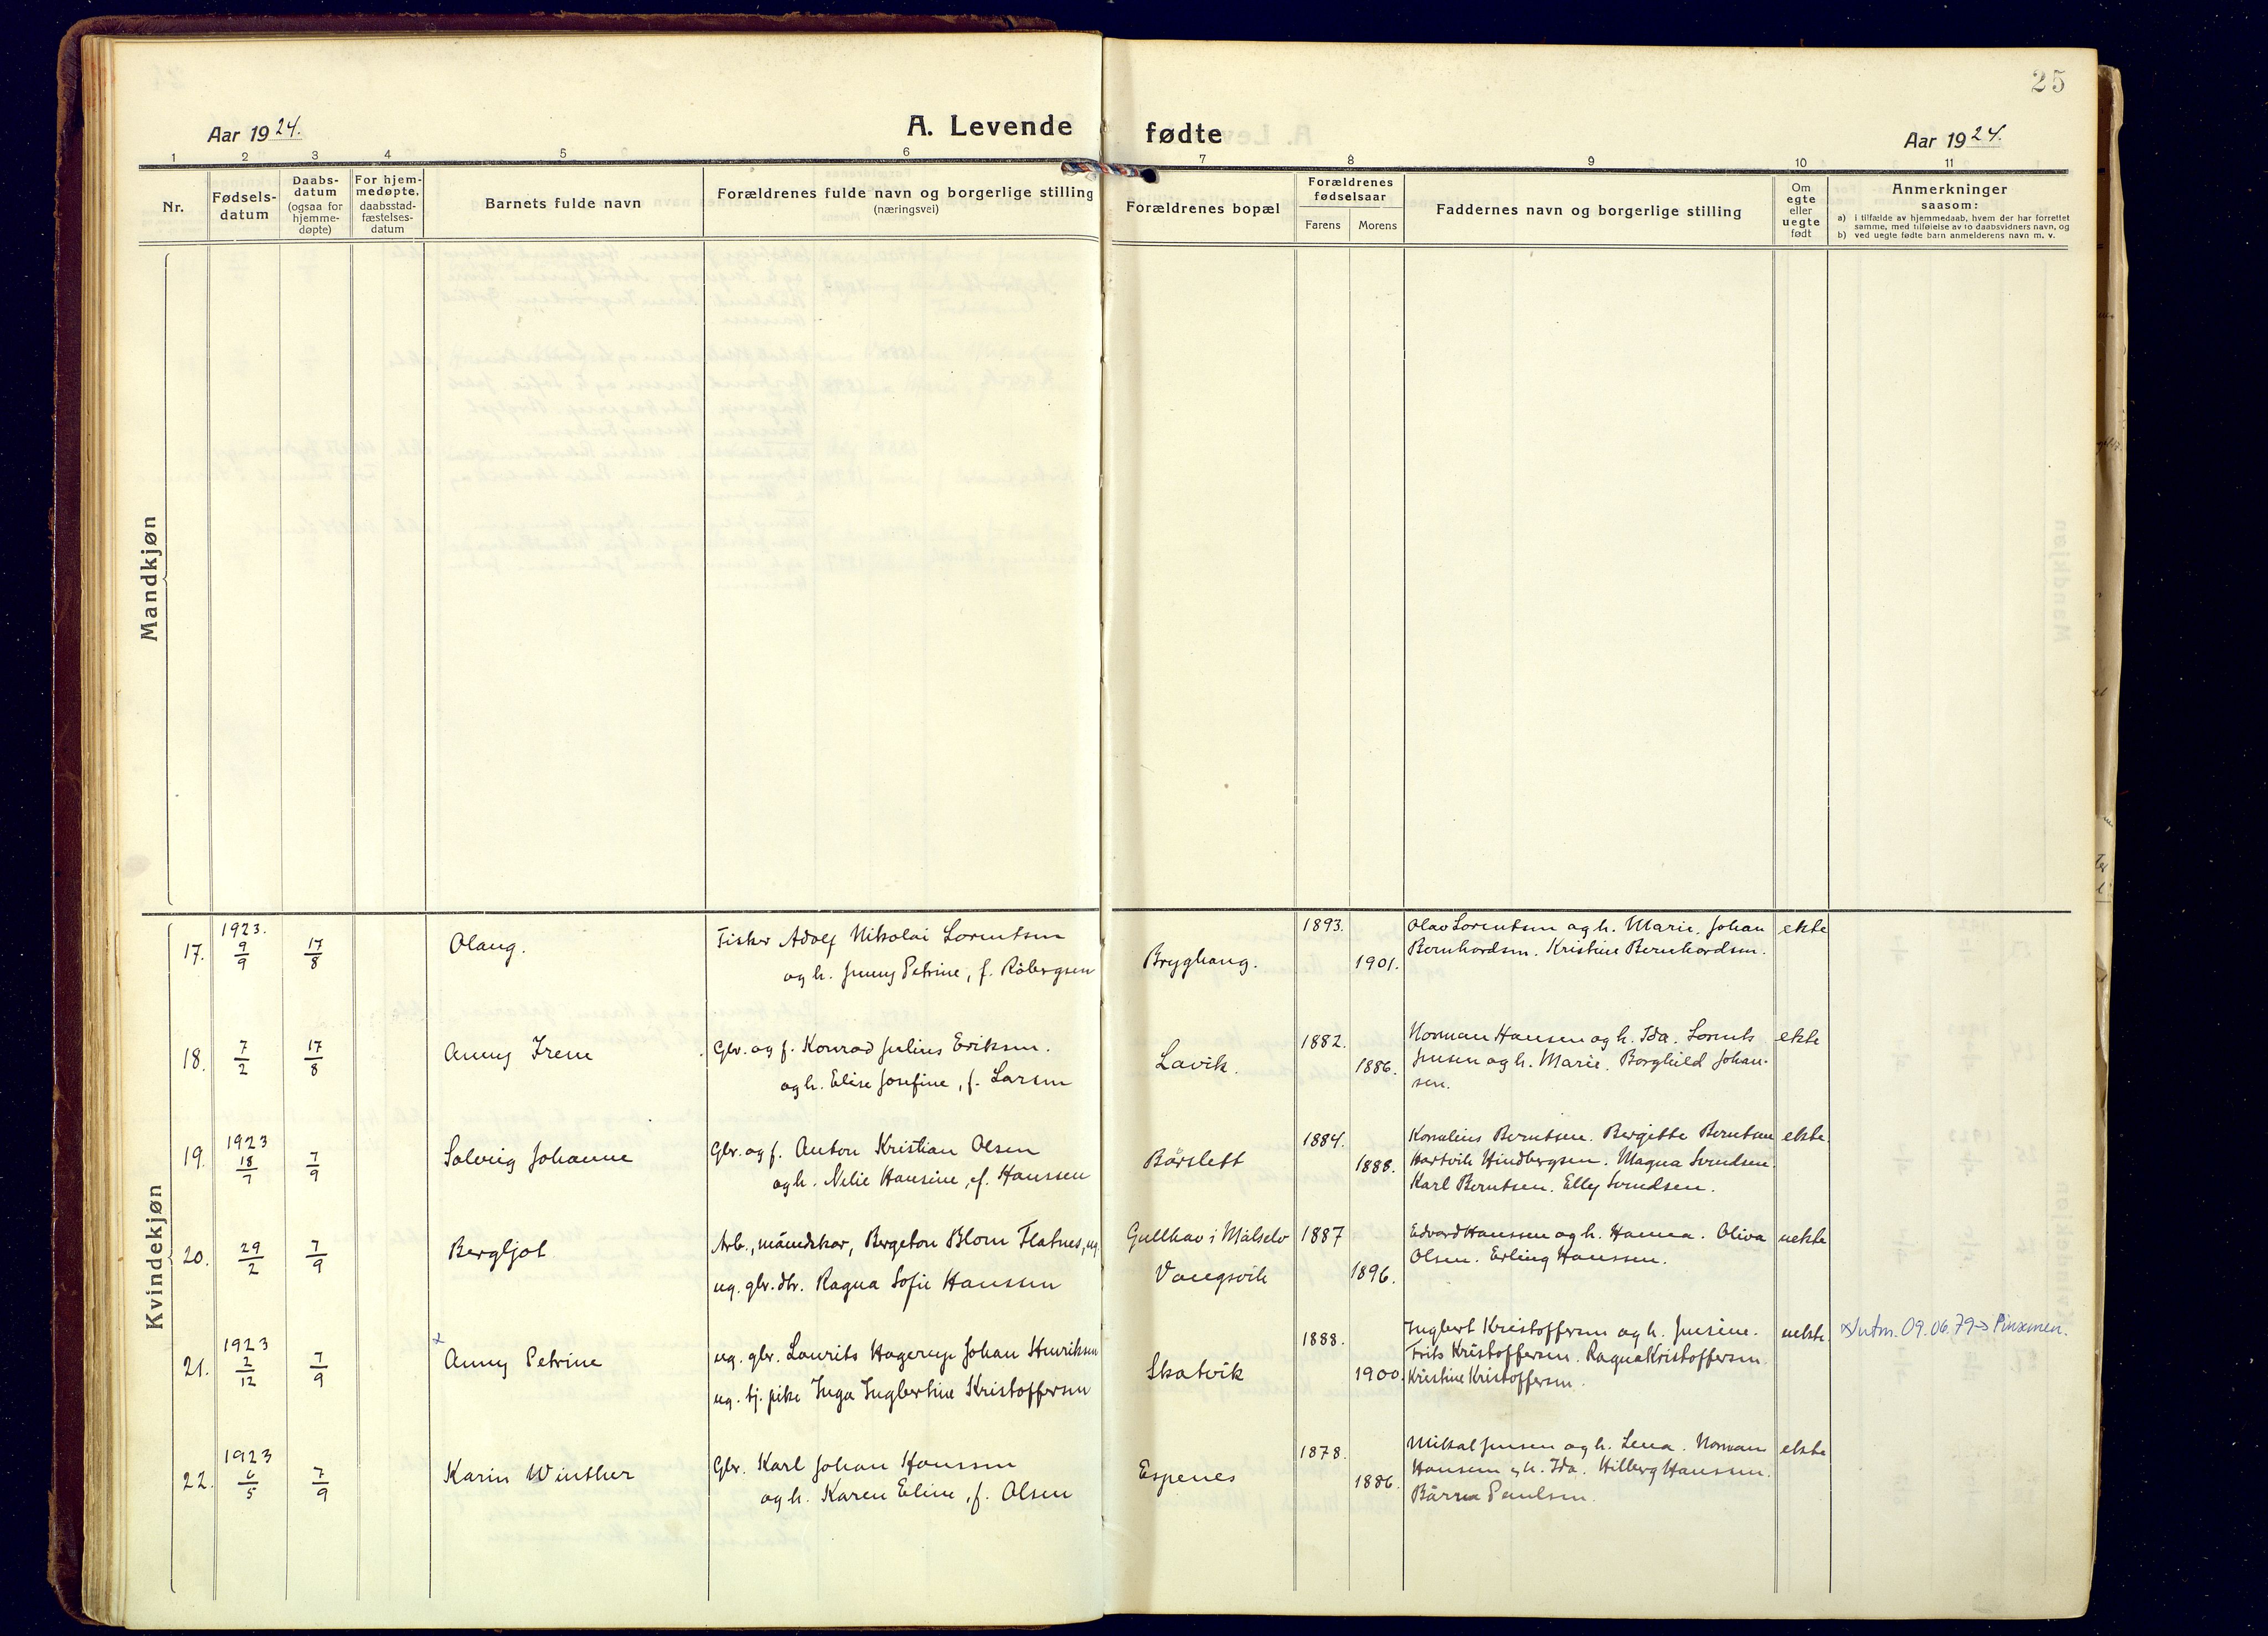 25
Aar 1924.
A. Levende fødte
Aar 1924.
1 2 3 4 5 6 7 8 9 10 11
Nr.
Fødsels-
datum
Daabs-
datum
(ogsaa for
hjemme-
døpte)
For hjem-
medøpte,
daabsstad-
fæstelses-
datum
Barnets fulde navn
Forældrenes fulde navn og borgerlige stilling
(næringsvei)
Forældrenes bopæl
Forældrenes
fødselsaar
Farens Morens
Faddernes navn og borgerlige stilling
Om
egte
eller
uegte
født
Anmerkninger
saasom:
a) i tilfælde av hjemmedaab, hvem der har forrettet
samme, med tilføielse av to daabsvidners navn, og
b) ved uegte fødte barn anmelderens navn m. v.
Mandkjøn
Kvindekjøn
17.
1923.
9/9
17/8
Olaug.
Fisker Adolf Nikolai Lorentsen
og h. Jenny Petrine, f. Röbergsen
Bryghaug.
1893.
1901.
Olav Lorentsen og h. Marie. Johan
Bernhardsen. Kristine Bernhardsen.
ekte
18.
7/2
17/8
Anny Irene
Gbr. og f. Konrad Julius Eriksen.
og h. Elise Josefine, f. Larsen
Lavik.
1882.
1886.
Norman Hansen og h. Ida. Lorents
Jensen og h. Marie. Borghild Johan-
sen.
ekte
19.
1923
18/7
7/9
Solveig Johanne
Gbr. og f. Anton Kristian Olsen
og h. Nelie Hansine, f. Hanssen
Børslett
1884.
1888.
Kornelius Berntsen. Bergitte Berntsen
Hartvik Hindbergsen. Magna Svendsen.
Karl Berntsen. Elly Svendsen.
ekte.
20.
29/2
7/9
Bergljot
Arb., månedskar, Bergeton Blom Flatnes, ug.
ug. gbr. dtr. Ragna Sofie Hanssen
Gullhav i Målselv
Vangsvik
1887
1896.
Edvard Hanssen og h. Hanna. Oliva
Olsen. Erling Hanssen.
uekte
21.
1923
2/12
7/9
x
Anny Petrine
ug. gbr. Laurits Hagerup Johan Henriksen
ug. tj. pike Inga Ingbertine Kristoffersen
Skatvik
1888.
1900.
Ingbert Kristoffersen og h. Jensine.
Frits Kristoffersen. Ragna Kristoffersen.
Kristine Kristoffersen.
uekte.
09.06.79
22.
1923
6/5
7/9
Karin Winther
Gbr. Karl Johan Hanssen
og h. Karen Eline, f. Olsen
Espenes
1878.
1886.
Mikal Jensen og h. Lena. Norman
Hansen og h. Ida. Hilberg Hanssen.
Paulsen.
ekte